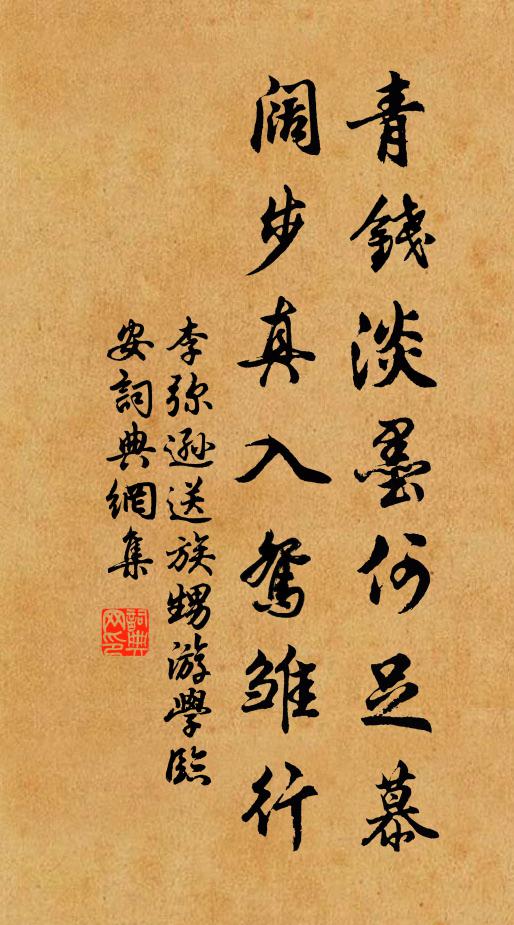 青錢淡墨何足慕
阔步真入鴛雏行
李弥逊送族甥游學臨
安詞典網集
詞典网印